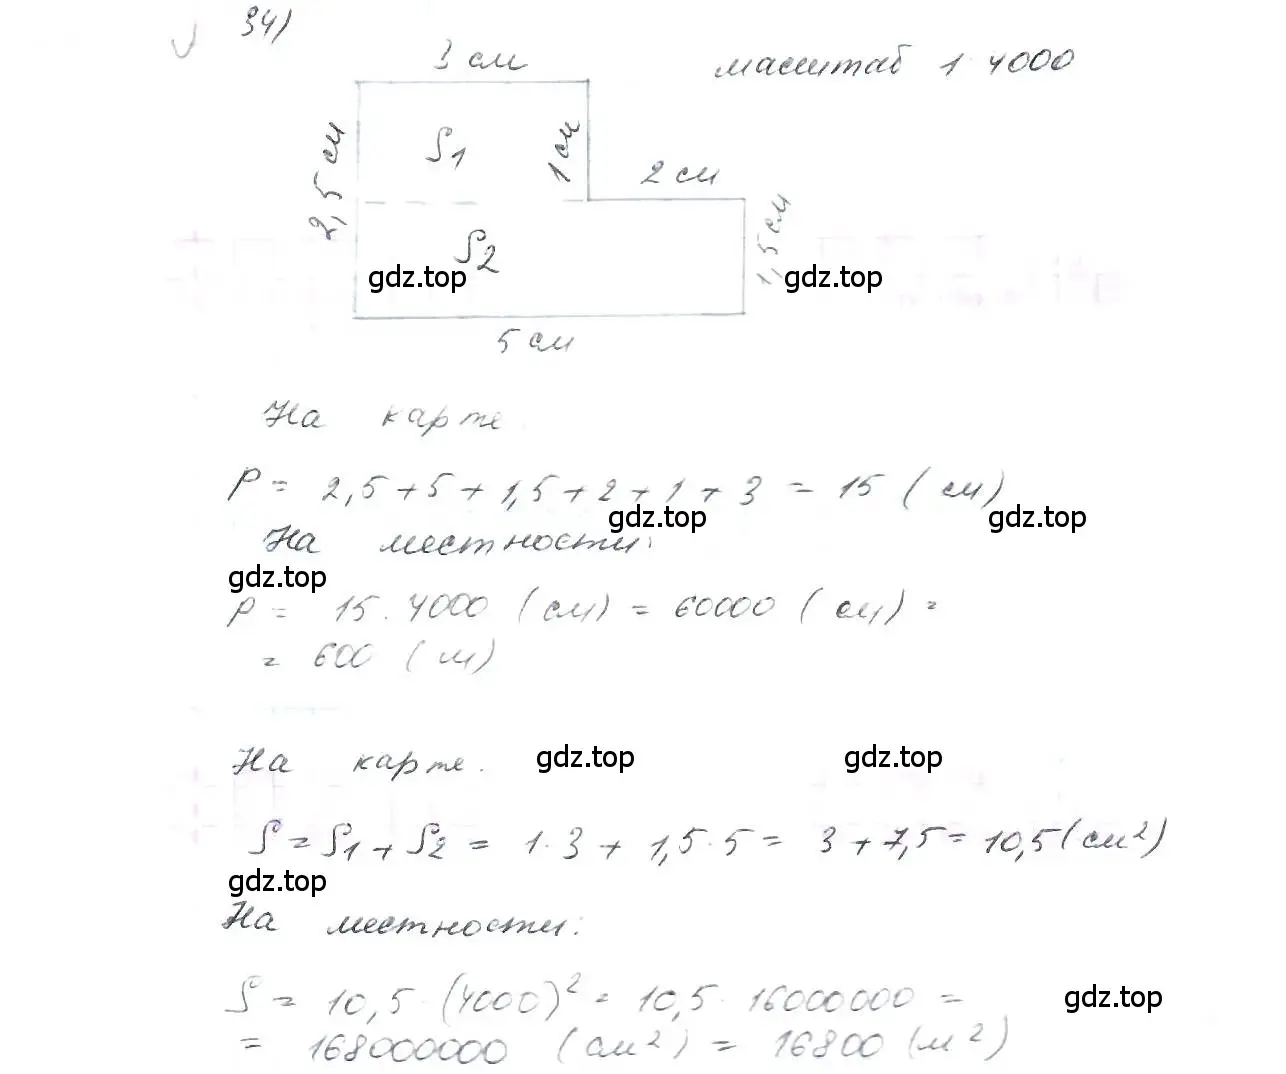 34)
3 см
масштаб 1 4000
2,5 см
S1
1 см
2 см
S2
1,5 см
gdz.top
gdz.top
5 см
На карте
P = 2,5 + 5 + 1,5 + 2 + 1 + 3 = 15 ( см)
gdz.top
gdz.top
На местности:
gdz.top
P = 15 . 4000 ( см) = 60000 ( см) =
= 600 ( м)
На карте.
gdz.top
gdz.top
S = S1 + S2 = 1 · 3 + 1,5 · 5 = 3 + 7,5 = 10,5 ( см²)
gdz.top
На местности:
S = 10,5 · (4000)² = 10,5 · 16000000 =
gdz.top
= 168000000 ( см²) = 16800 ( м²)